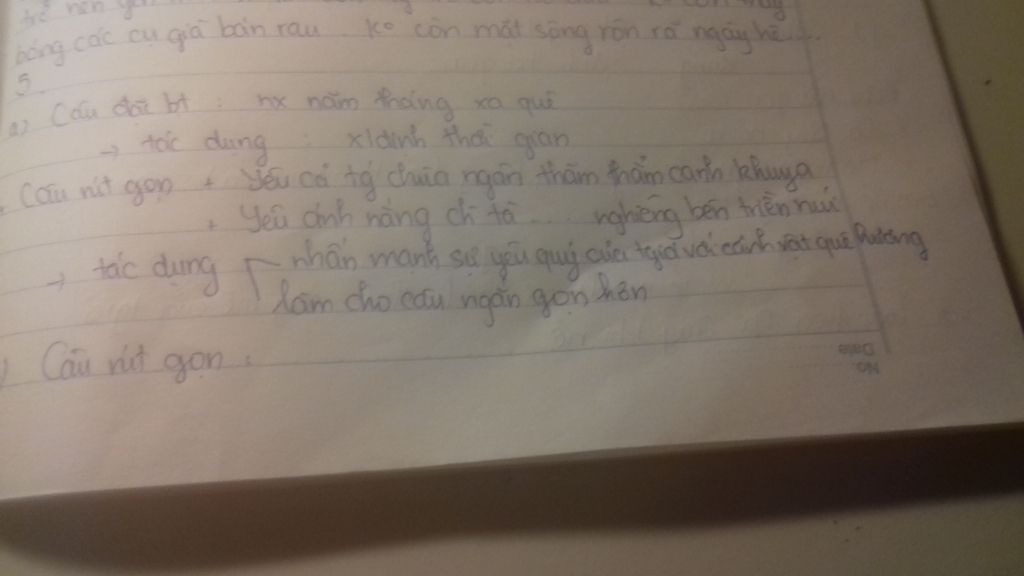 trở nên
bóng các cụ già bán rau. Ko còn mặt sông rộn rã ngày hè...
5.
a) Câu đặt bt : nx năm tháng xa quê
→ tác dụng : x/định thời gian
Câu rút gọn + Yêu cả tg chùa ngân thăm thẳm canh khuya
+ Yêu ánh nắng chỉ tà ... nghiêng bên triền núi
→ tác dụng nhấn mạnh sự yêu quý của tgiả với cảnh vật quê hương
làm cho câu ngắn gọn hơn
) Câu rút gọn :
No.
Date